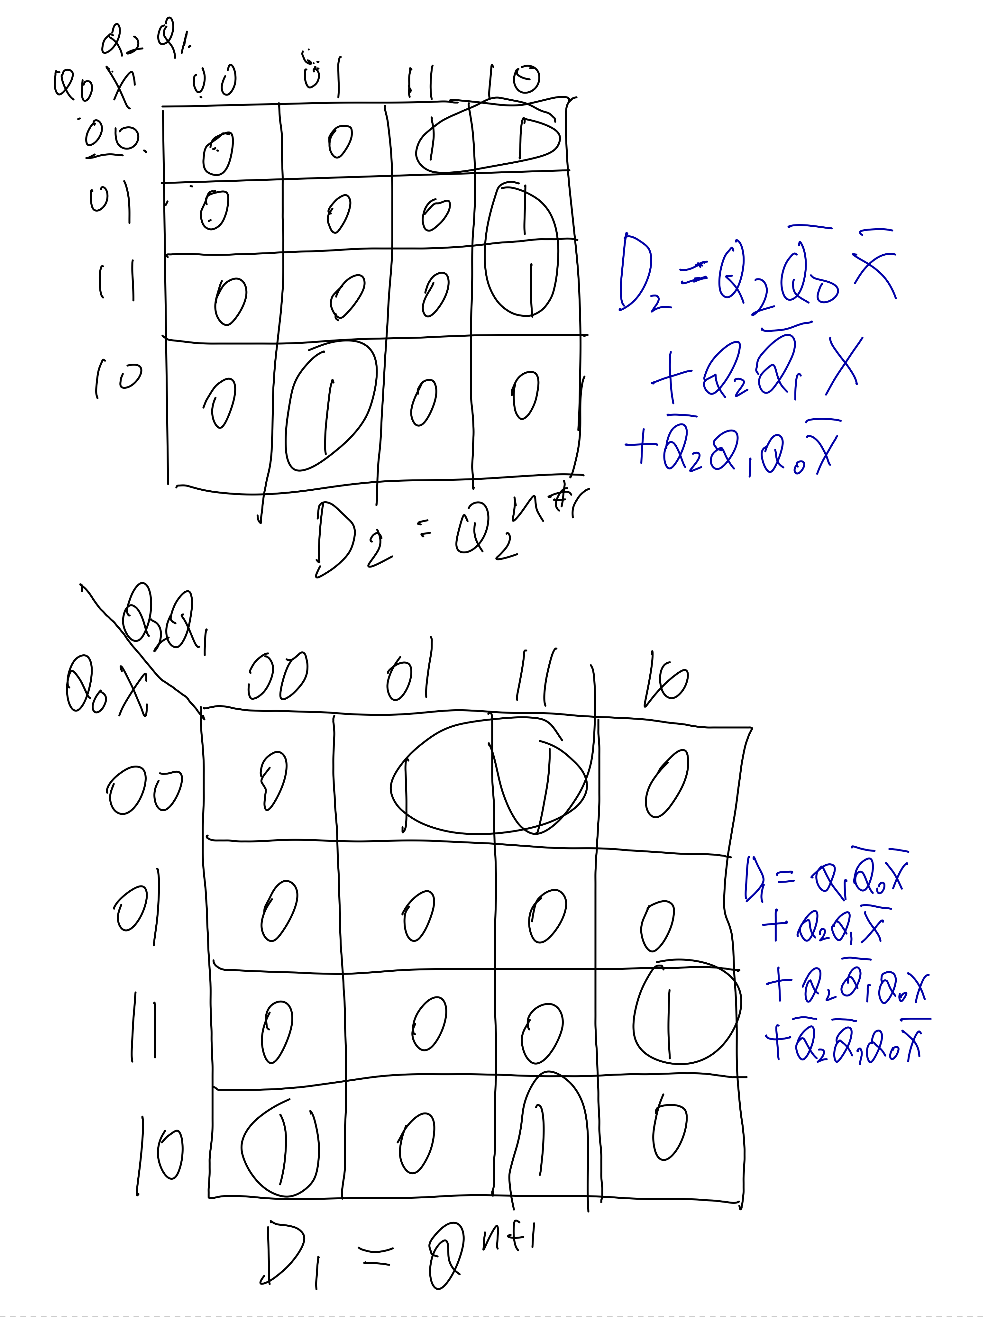 Q₂ Q₁
Q₀ X 00 01 11 10
00 0 0 1 1
01 0 0 0 1
11 0 0 0 1
10 0 1 0 0
D₂ = Q₂Q̅₀X̅
+ Q₂Q̅₁X
+ Q̅₂Q₁Q₀X̅
D₂ = Q₂ⁿ⁺¹
Q₂Q₁
Q₀X 00 01 11 10
00 0 1 1 0
01 0 0 0 0
11 0 0 0 1
10 1 0 1 0
D₁ = Q₁Q̅₀X̅
+ Q₂Q₁X̅
+ Q₂Q̅₁Q₀X
+ Q̅₂Q̅₁Q₀X̅
D₁ = Qⁿ⁺¹